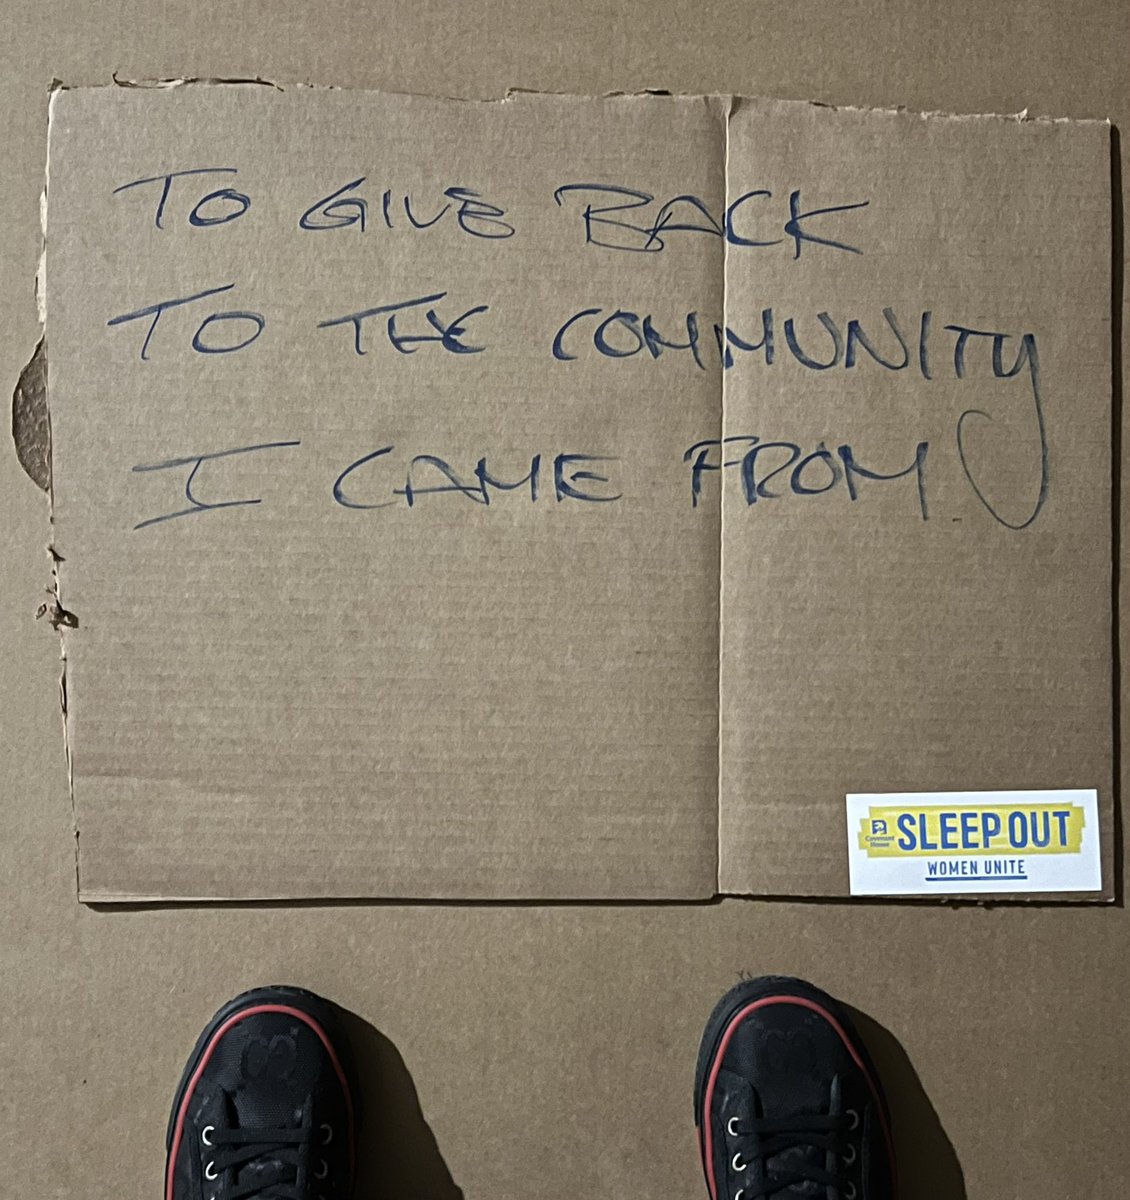 TO GIVE BACK
TO THE COMMUNITY
I CAME FROM
Covenant
House
SLEEP OUT
WOMEN UNITE